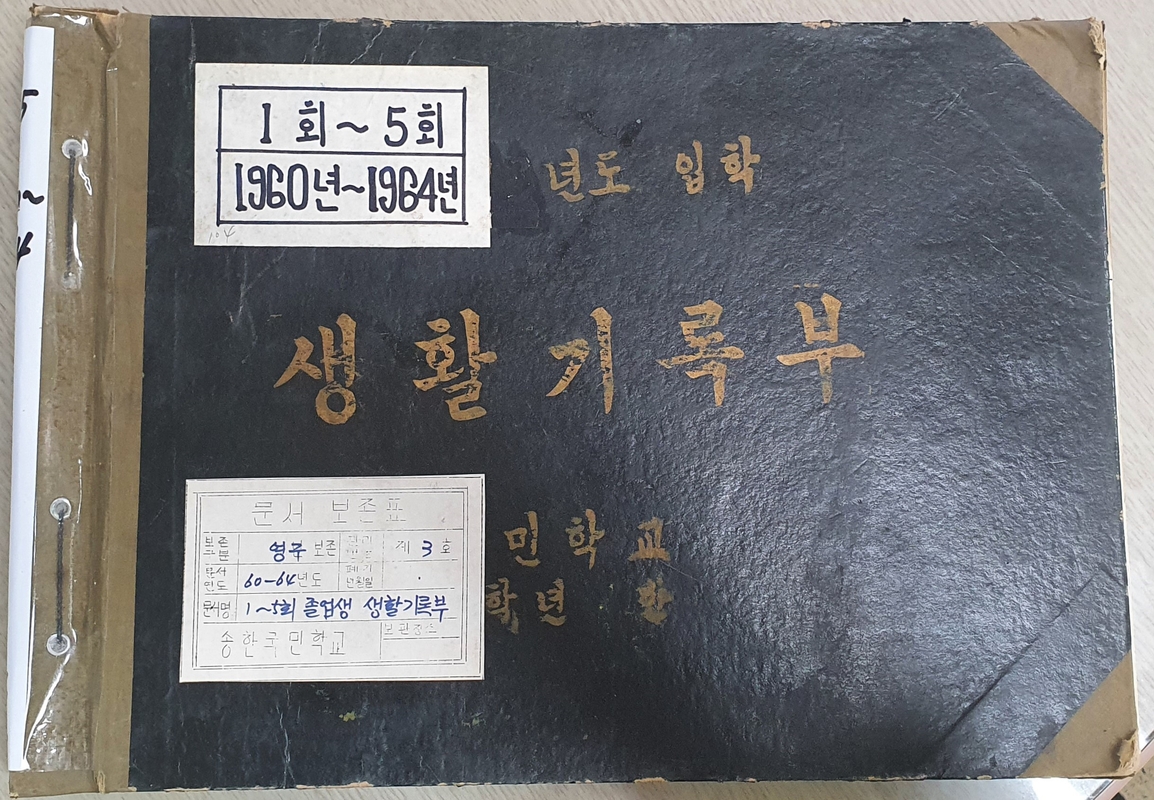 1회~5회
1960년~1964년
년도 입학
생활기록부
문서 보존표
보존
구분
영구 보존
제 3 호
문서
년도
60-64년도
폐기
년월일
문서명
1~5회 졸업생 생활기록부
송한국민학교
보관장소
민학교
학년